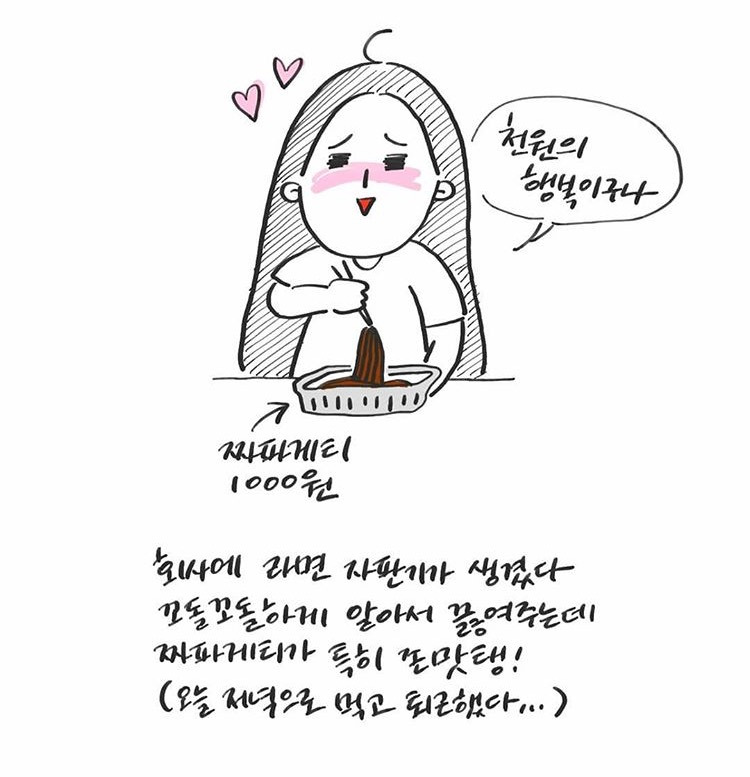 천원의
행복이구나
짜파게티
1000원
회사에 라면 자판기가 생겼다
꼬돌꼬돌하게 알아서 끓여주는데
짜파게티가 특히 존맛탱!
(오늘 저녁으로 먹고 퇴근했다...)